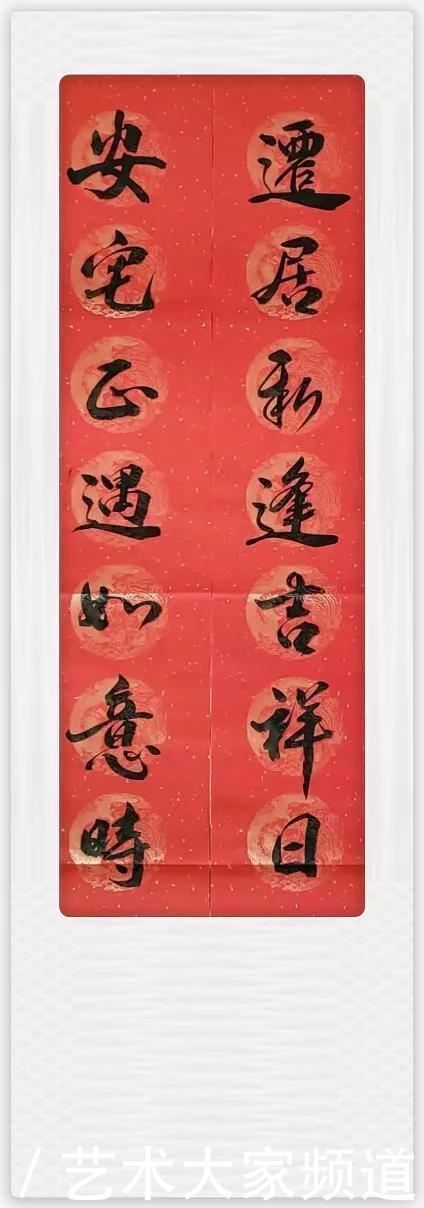 遷居利逢吉祥日
安宅正遇如意時
/ 艺术大家频道